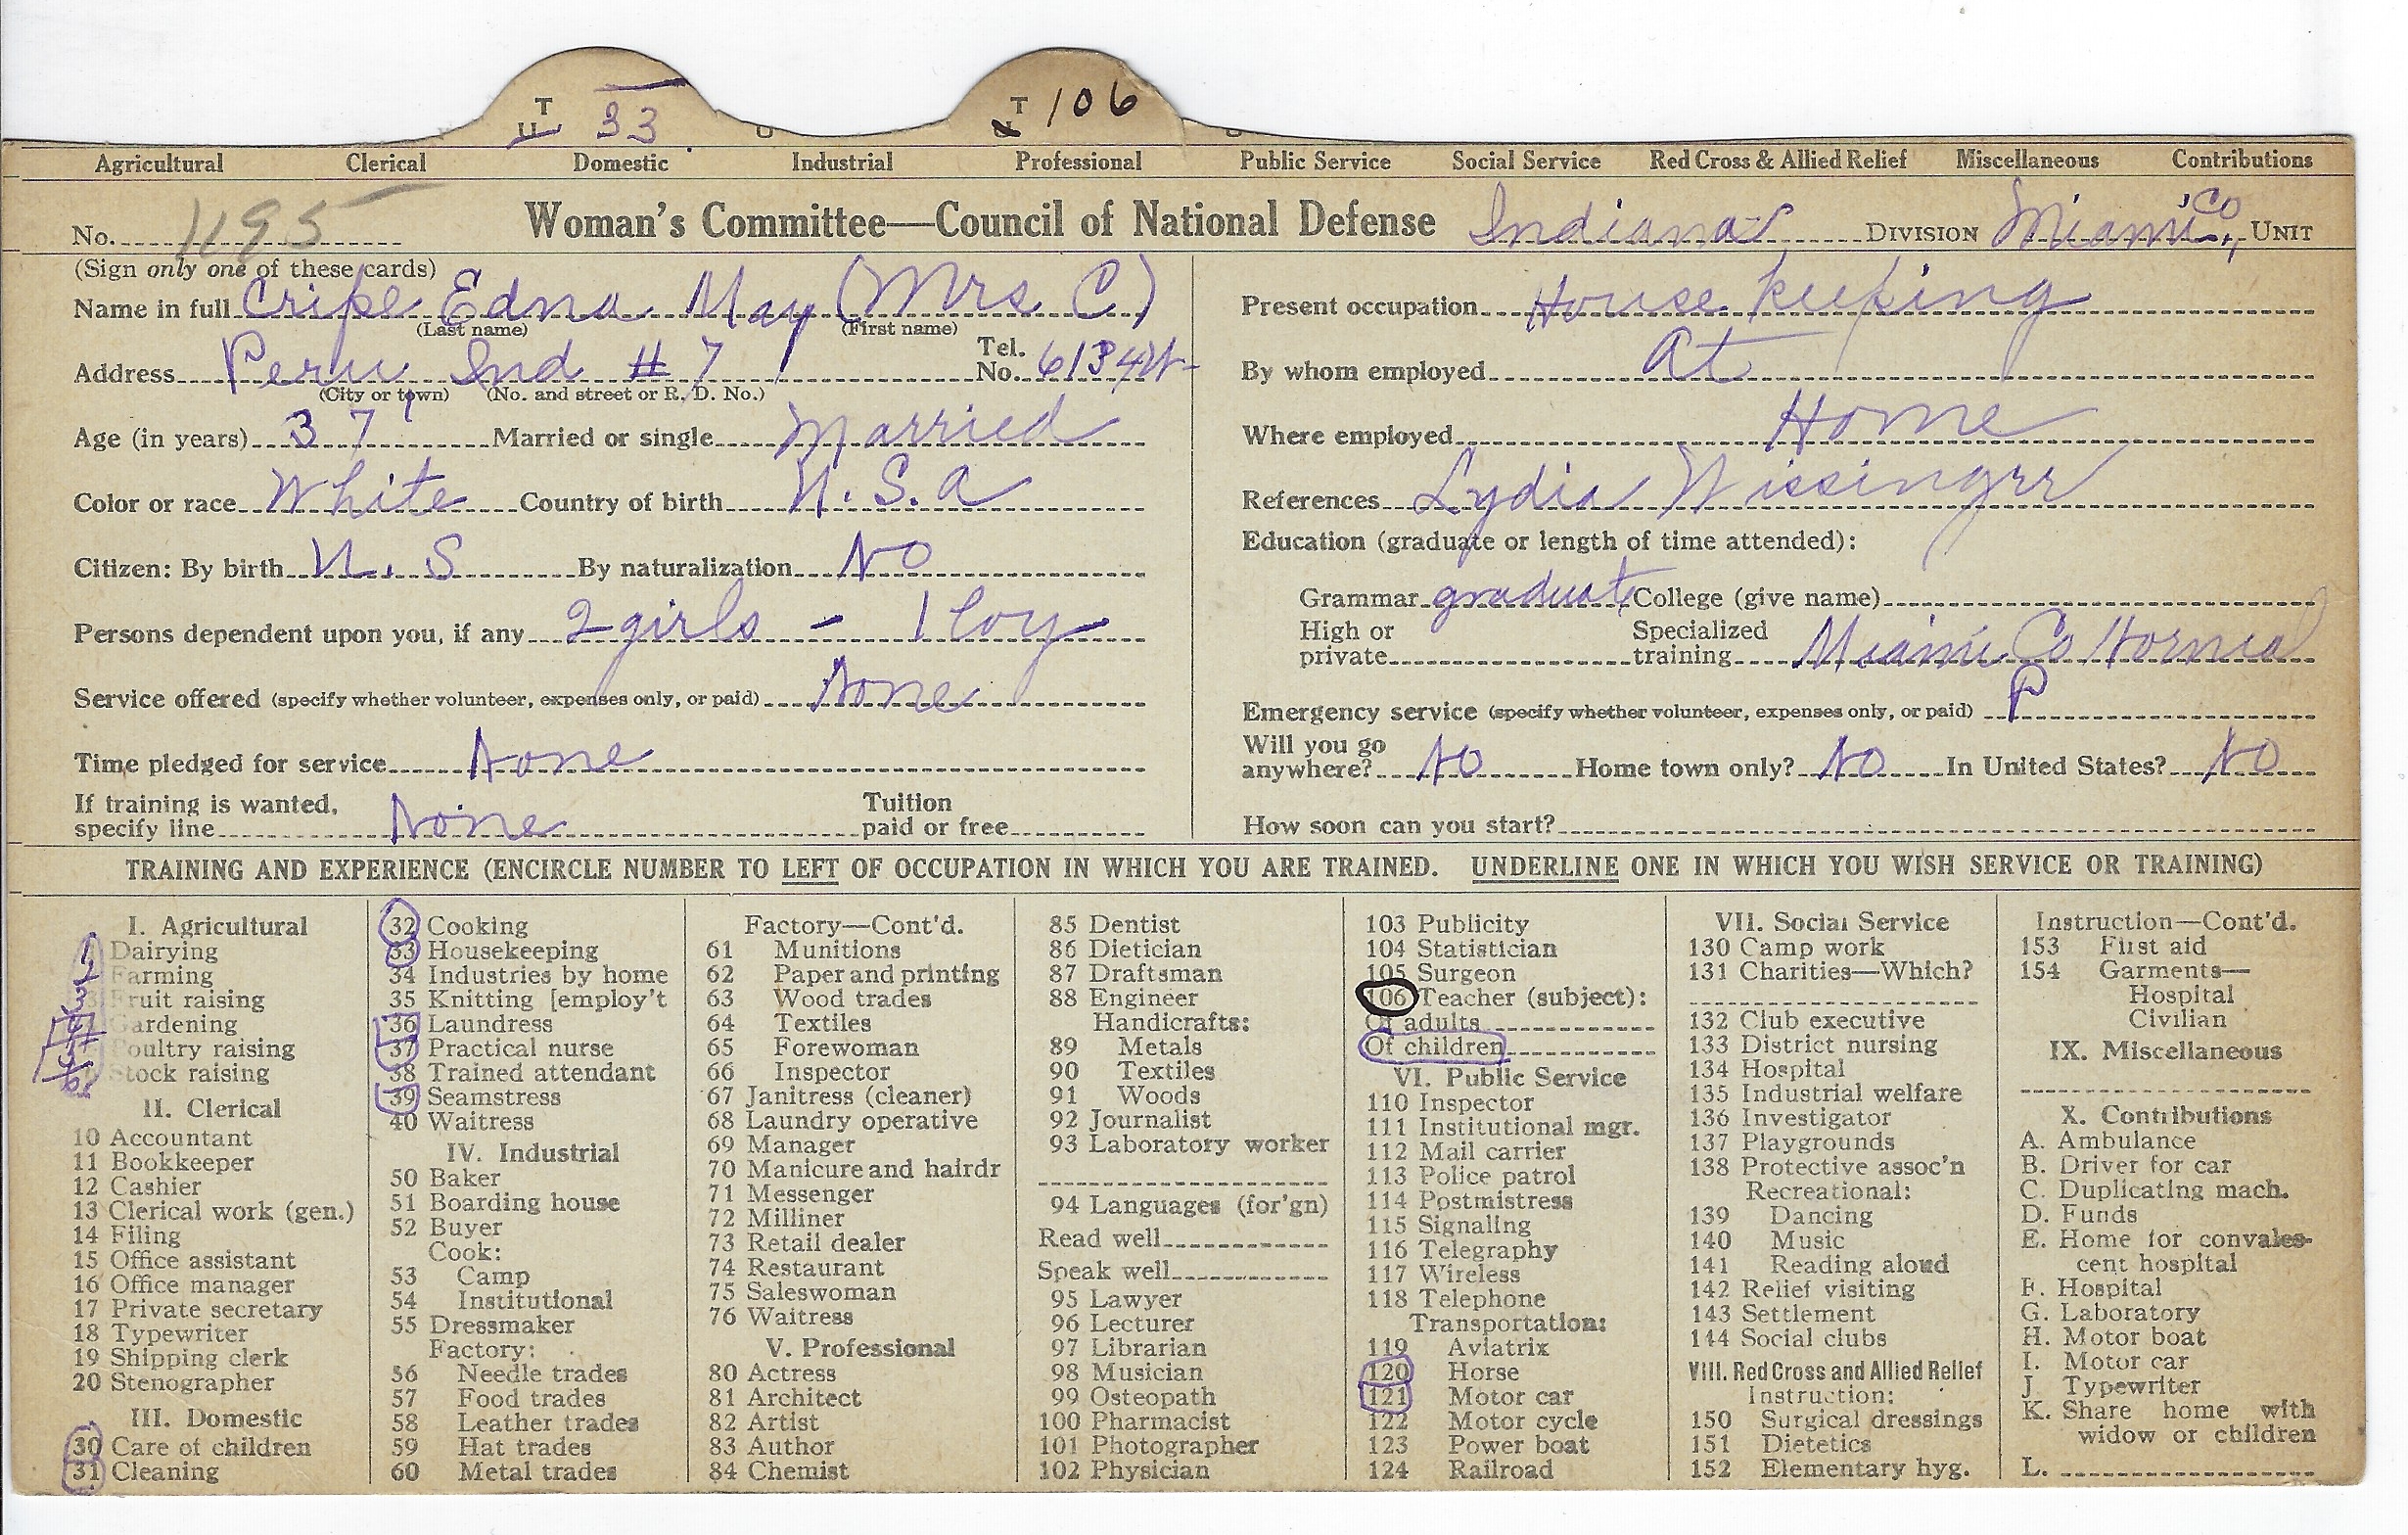 T T
U 33 106
Agricultural Clerical Domestic Industrial Professional Public Service Social Service Red Cross & Allied Relief Miscellaneous Contributions
No. 1195 Woman's Committee—Council of National Defense Indiana DIVISION Miami Co. UNIT
(Sign only one of these cards)
Name in full Cripe Edna May (Mrs C)
(Last name) (First name)
Address Peru Ind # 7 Tel. No. 6134
(City or town) (No. and street or R. D. No.)
Age (in years) 37 Married or single Married
Color or race White Country of birth U.S.a
Citizen: By birth U.S By naturalization No
Persons dependent upon you, if any 2 girls - 1 boy
Service offered (specify whether volunteer, expenses only, or paid) None
Time pledged for service None
If training is wanted, specify line None Tuition paid or free
Present occupation House keeping
By whom employed At
Where employed Home
References Lydia
Education (graduate or length of time attended):
Grammar graduate College (give name)
High or private Specialized training Miami Co
Emergency service (specify whether volunteer, expenses only, or paid) P
Will you go anywhere? No Home town only? No In United States? No
How soon can you start?
TRAINING AND EXPERIENCE (ENCIRCLE NUMBER TO LEFT OF OCCUPATION IN WHICH YOU ARE TRAINED. UNDERLINE ONE IN WHICH YOU WISH SERVICE OR TRAINING)
I. Agricultural
1 Dairying
2 Farming
3 Fruit raising
4 Gardening
5 Poultry raising
6 Stock raising
II. Clerical
10 Accountant
11 Bookkeeper
12 Cashier
13 Clerical work (gen.)
14 Filing
15 Office assistant
16 Office manager
17 Private secretary
18 Typewriter
19 Shipping clerk
20 Stenographer
III. Domestic
30 Care of children
31 Cleaning
32 Cooking
33 Housekeeping
34 Industries by home
35 Knitting [employ't
36 Laundress
37 Practical nurse
38 Trained attendant
39 Seamstress
40 Waitress
IV. Industrial
50 Baker
51 Boarding house
52 Buyer
Cook:
53 Camp
54 Institutional
55 Dressmaker
Factory:
56 Needle trades
57 Food trades
58 Leather trades
59 Hat trades
60 Metal trades
Factory—Cont'd.
61 Munitions
62 Paper and printing
63 Wood trades
64 Textiles
65 Forewoman
66 Inspector
67 Janitress (cleaner)
68 Laundry operative
69 Manager
70 Manicure and hairdr
71 Messenger
72 Milliner
73 Retail dealer
74 Restaurant
75 Saleswoman
76 Waitress
V. Professional
80 Actress
81 Architect
82 Artist
83 Author
84 Chemist
85 Dentist
86 Dietician
87 Draftsman
88 Engineer
Handicrafts:
89 Metals
90 Textiles
91 Woods
92 Journalist
93 Laboratory worker
94 Languages (for'gn)
Read well
Speak well
95 Lawyer
96 Lecturer
97 Librarian
98 Musician
99 Osteopath
100 Pharmacist
101 Photographer
102 Physician
103 Publicity
104 Statistician
105 Surgeon
106 Teacher (subject):
Of adults
Of children
VI. Public Service
110 Inspector
111 Institutional mgr.
112 Mail carrier
113 Police patrol
114 Postmistress
115 Signaling
116 Telegraphy
117 Wireless
118 Telephone
Transportation:
119 Aviatrix
120 Horse
121 Motor car
122 Motor cycle
123 Power boat
124 Railroad
VII. Social Service
130 Camp work
131 Charities—Which?
132 Club executive
133 District nursing
134 Hospital
135 Industrial welfare
136 Investigator
137 Playgrounds
138 Protective assoc'n
Recreational:
139 Dancing
140 Music
141 Reading aloud
142 Relief visiting
143 Settlement
144 Social clubs
VIII. Red Cross and Allied Relief
Instruction:
150 Surgical dressings
151 Dietetics
152 Elementary hyg.
Instruction—Cont'd.
153 First aid
154 Garments—
Hospital
Civilian
IX. Miscellaneous
X. Contributions
A. Ambulance
B. Driver for car
C. Duplicating mach.
D. Funds
E. Home for convales-
cent hospital
F. Hospital
G. Laboratory
H. Motor boat
I. Motor car
J. Typewriter
K. Share home with
widow or children
L.